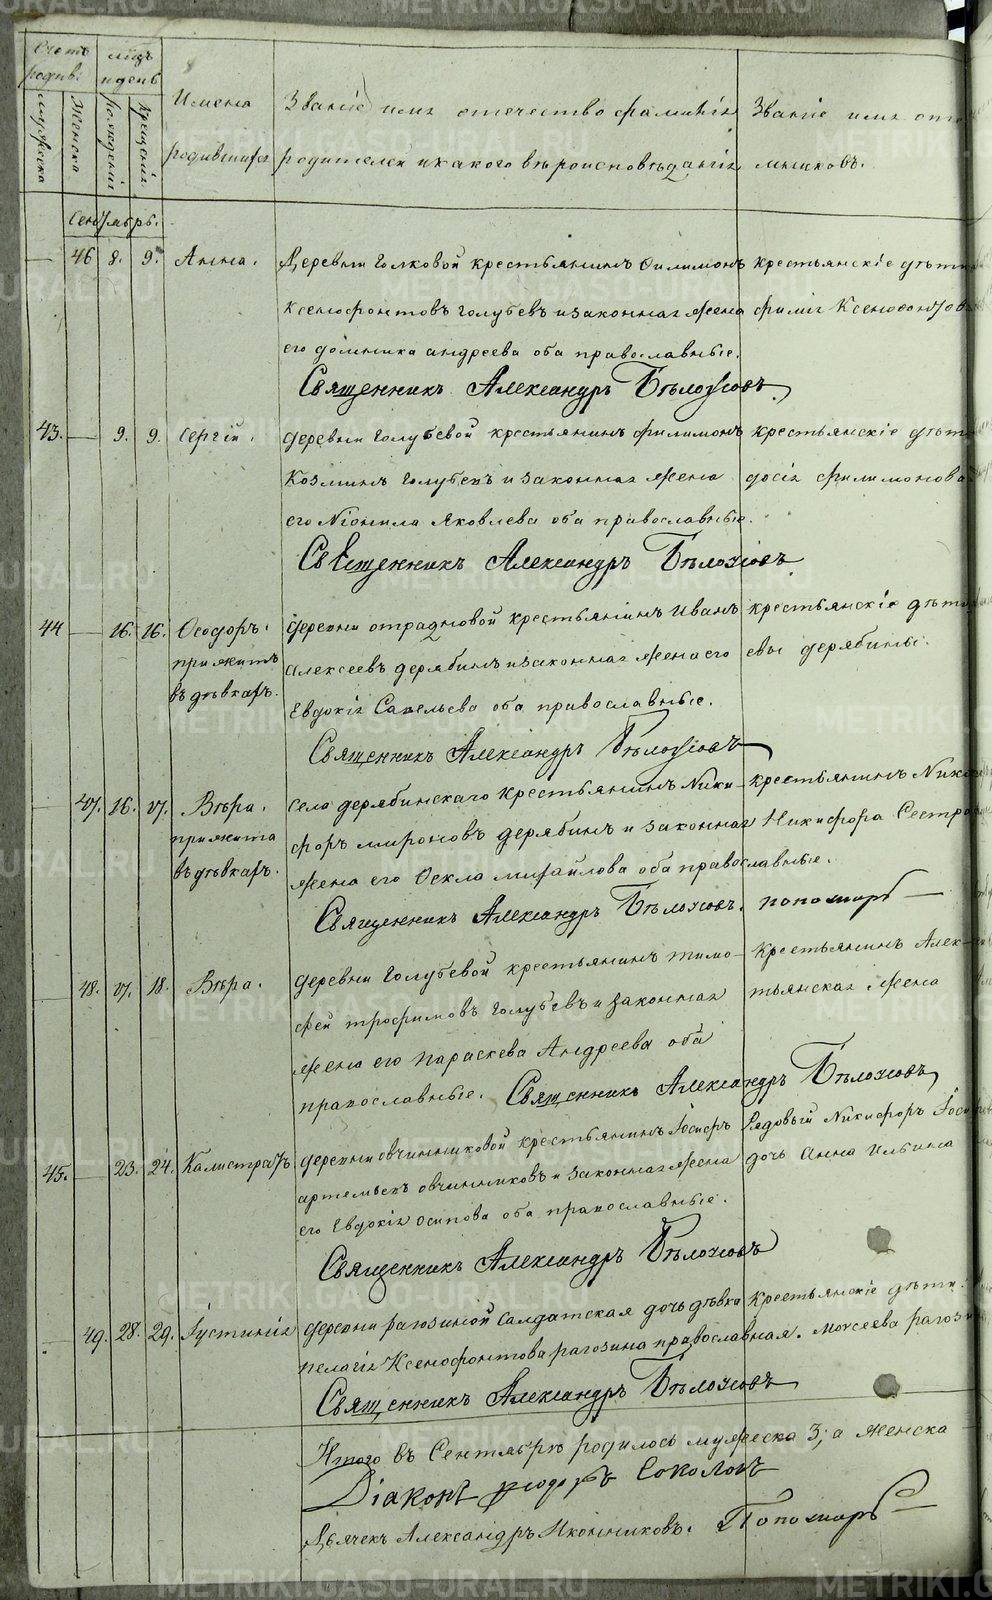 METRIKI.GASO-URAL.RU
Счетъ родив: мѣсць и день
Имена родившихся
Званіе имя отечество фамилія
родителей и какого вѣроисповѣданія
Званіе имя
мниковъ.
мужеска
женска
рожденія
крещенія
Сентябрь.
46 8. 9. Анна. Деревни Голковой крестьянинъ Филимонъ крестьянскіе дѣти
Ксенофонтовъ Голубевъ и законная жена
его Домника Андреева оба православные.
Священникъ Александръ Бѣлоусовъ
43. 9. 9. Сергій. деревни Голубевой крестьянинъ Филимонъ крестьянскіе дѣти
Козминъ Голубевъ и законная жена досія Филимонова
его Неонила Яковлева оба православные.
Священникъ Александръ Бѣлоусовъ
44 16. 16. Ѳеодоръ. деревни Отрадновой крестьянинъ Иванъ крестьянскіе дѣти
прижитъ Алексеевъ Дерябинъ и законная жена его евы Дерябины.
въ дѣвкахъ. Евдокія Савельева оба православные.
Священникъ Александръ Бѣлоусовъ
47. 16. 17. Вѣра. село Дерябинскаго крестьянинъ Ники- крестьянинъ
прижита форъ Мироновъ Дерябинъ и законная Никифора Сестра
въ дѣвкахъ. жена его Ѳекла Михайлова оба православные.
Священникъ Александръ Бѣлоусовъ. Пономарь
48. 17. 18. Вѣра. деревни Голубевой крестьянинъ Тимо- Крестьянинъ Алек-
фей Трофимовъ Голубевъ и законная тьянская жена
жена его Параскева Андреева оба
православные. Священникъ Александръ Бѣлоусовъ
45. 23. 24. Калистратъ деревни Овчинниковой крестьянинъ Іосифъ Рядовый Никифоръ
Артемьевъ Овчинниковъ и законная жена дочь Анна Ильина
его Евдокія Осипова оба православные.
Священникъ Александръ Бѣлоусовъ
49. 28. 29. Іустинія деревни Рагозиной Салдатская дочь дѣвка крестьянскіе дѣти
Пелагія Ксенофонтова Рагозина православная. Моисеева
Священникъ Александръ Бѣлоусовъ
Итого въ Сентябрѣ родилось мужеска 3, а женска
Діаконъ Ѳеодоръ Соколовъ
Дьячекъ Александръ Иконниковъ. Пономарь